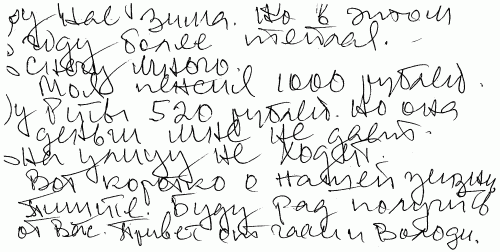 у нас зима. Но в этом
году более теплая.
Снегу много.
Моя пенсия 1000 рублей.
у Руты 520 рублей. Но она
деньги мне не дает.
На улицу не ходит.
Вот коротко о нашей жизни
Пишите. Буду рад получить
от Вас. Привет от Гали и Володи.